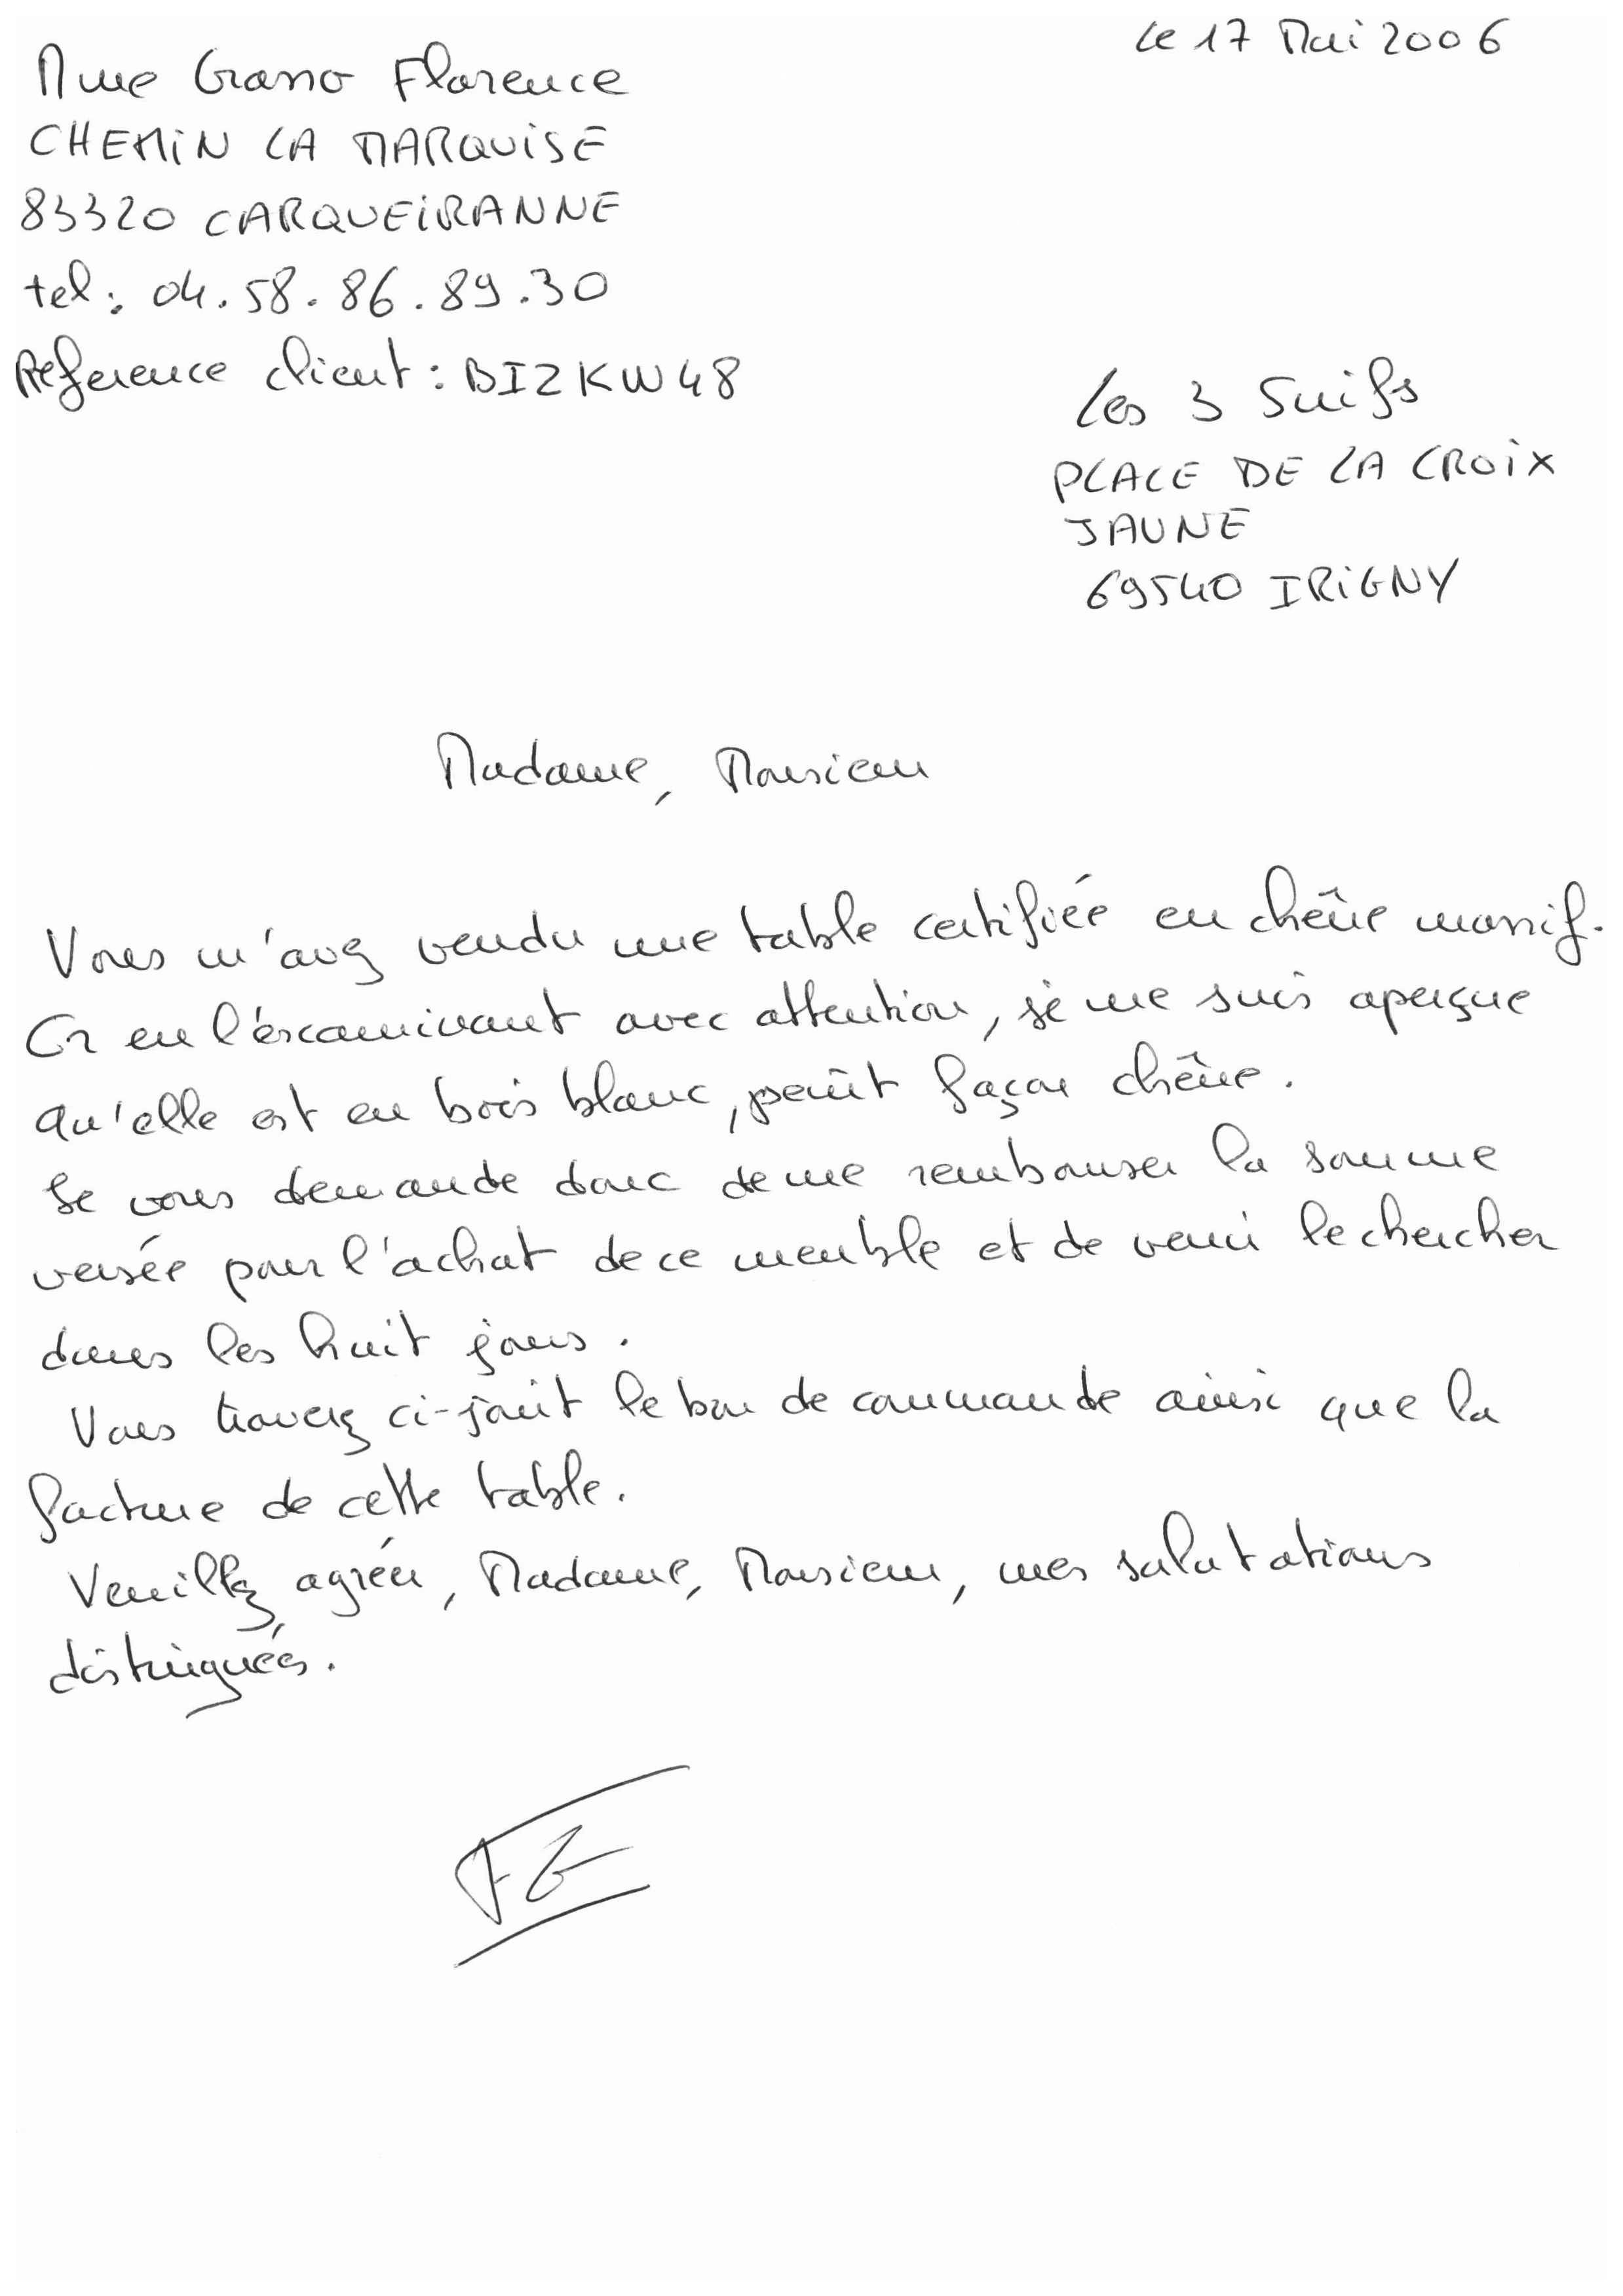 Le 17 Mai 2006
Mme Grasso Florence
CHEMIN LA MARQUISE
83320 CARQUEIRANNE
tel : 04.58.86.89.30
Référence client : BIZKW48
Les 3 Suifs
PLACE DE LA CROIX
JAUNE
69540 IRIGNY
Madame, Monsieur
Vous m'avez vendu une table certifiée en chêne massif.
Or en l'éxaminant avec attention, je me suis aperçue
qu'elle est en bois blanc, peint façon chêne.
Je vous demande donc de me rembourser la somme
versée pour l'achat de ce meuble et de venir le chercher
dans les huit jours.
Vous trouverez ci-joint le bon de commande ainsi que la
facture de cette table.
Veuillez agréer, Madame, Monsieur, mes salutations
distinguées.
FG